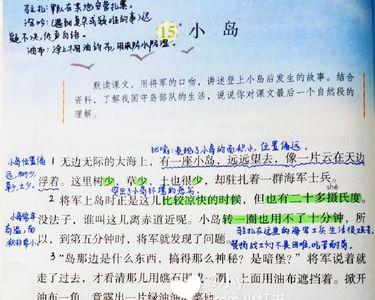 驻扎:军队在某地安营扎寨。
沉吟:(遇到复杂或疑难的事)迟
疑不决,低声自语。
油布:涂上桐油的布,用来防水防潮。
15 小岛
默读课文,用将军的口吻,讲述登上小岛后发生的故事。结合
资料,了解我国守岛部队的生活,说说你对课文最后一个自然段的
理解。
比喻:表现了小岛的面积小,位置偏远。
小岛位置偏
远,树少,
草少,土少。
1 无边无际的大海上,有一座小岛,远远望去,像一片云在天边
浮着。这里树少,草少,土也很少,却驻扎着一群海军士兵。
突出了小岛环境的恶劣。
shè
2 将军登上岛时正是这儿比较凉快的时候,但也有二十多摄氏度。
没法子,谁叫这儿离赤道近呢。小岛转一圈也用不了十分钟,所
以,到第五分钟时,将军就发现了问题。
小岛常年
高温,面
积非常小。
3 “岛那边是什么东西,搞得那么神秘?是暗堡?”将军说着就
走了过去,才看清那儿用礁石砌成一
上面用油布遮挡着。掀开
油布一角,竟露出一片绿油油的菜地